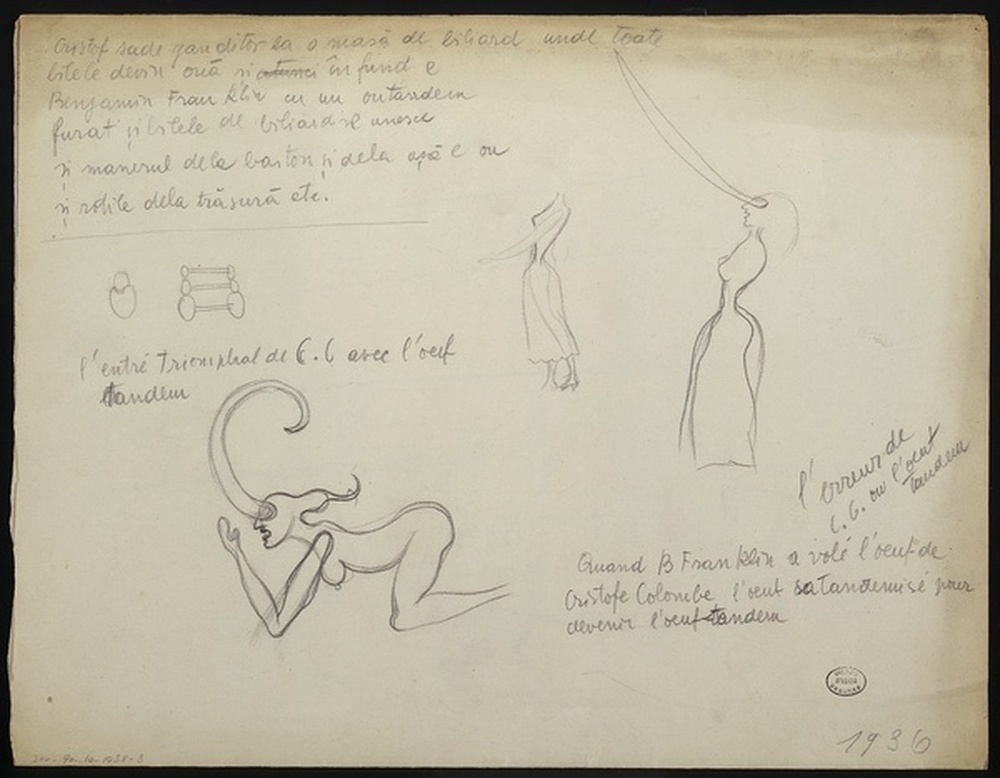 Cristof sade ganditor la o masă de biliard unde toate
bilele devin ouă și atunci în fund e
Benjamin Franklin cu un outandem
furat și bilele de biliard se unesc
și manerul dela baston și dela ușă e ou
și rotile dela trăsură etc.
l'entré Triomphal de C.C avec l'oeuf
tandem
l'erreur de
C.C. ou l'oeuf
Tandem
Quand B Franklin a volé l'oeuf de
Cristofe Colombe l'oeuf sa Tandemisé pour
devenir l'oeuf-tandem
1936